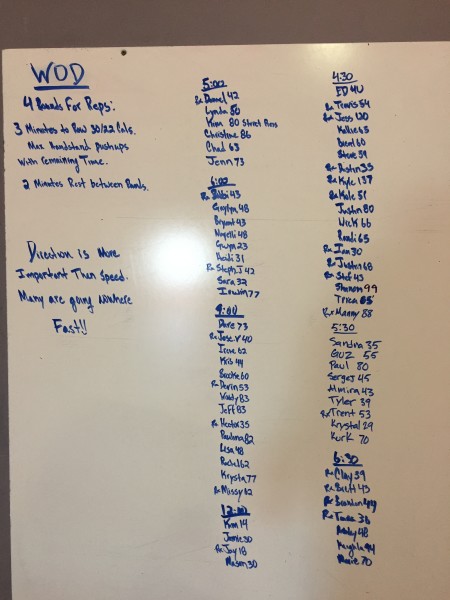 WOD
4 Rounds For Reps:
3 Minutes to Row 30/22 Cals.
Max Handstand Pushups
With Remaining Time.
2 Minutes Rest between Rounds.
Direction is More
Important Than Speed.
Many are going nowhere
Fast!!
5:00
Rx Daniel 42
Lynda 80
Kim 80 Street Pens
Christine 86
Chad 63
Jenn 73
6:00
Rx Bobbi 43
Bryant 43
Mayelli 48
Gwyn 23
Heidi 31
Rx Steph J 42
Sara 32
Irwin 77
9:00
Dave 73
Rx Jose V 40
Irene 62
Kris 44
Brooke 60
Rx Devin 53
Waldy 83
Jeff 83
Rx Hector 35
Paulina 82
Lisa 48
Rachel 62
Krysta 77
Rx Missy 62
12:00
Kim 14
Jamie 30
Rx Jay 18
Mason 30
4:30
ED 40
Rx Travis 54
Rx Jess 120
Hollie 65
Brent 60
Steve 59
Rx Dustin 33
Rx Kyle 137
Rx Kole 51
Justin 80
Nick 66
Randi 65
Rx Ian 30
Rx Justin 68
Rx Stef 43
Shannon 99
Trica 65
Rx Manny 88
5:30
Sandra 35
GUZ 55
Paul 80
Sergej 45
Almira 43
Tyler 39
Rx Trent 53
Krystal 29
Kurk 70
6:30
Rx Clay 39
Rx Brett 43
Rx Brandon
Rx Travis 36
48
Kayhla 94
Marie 70